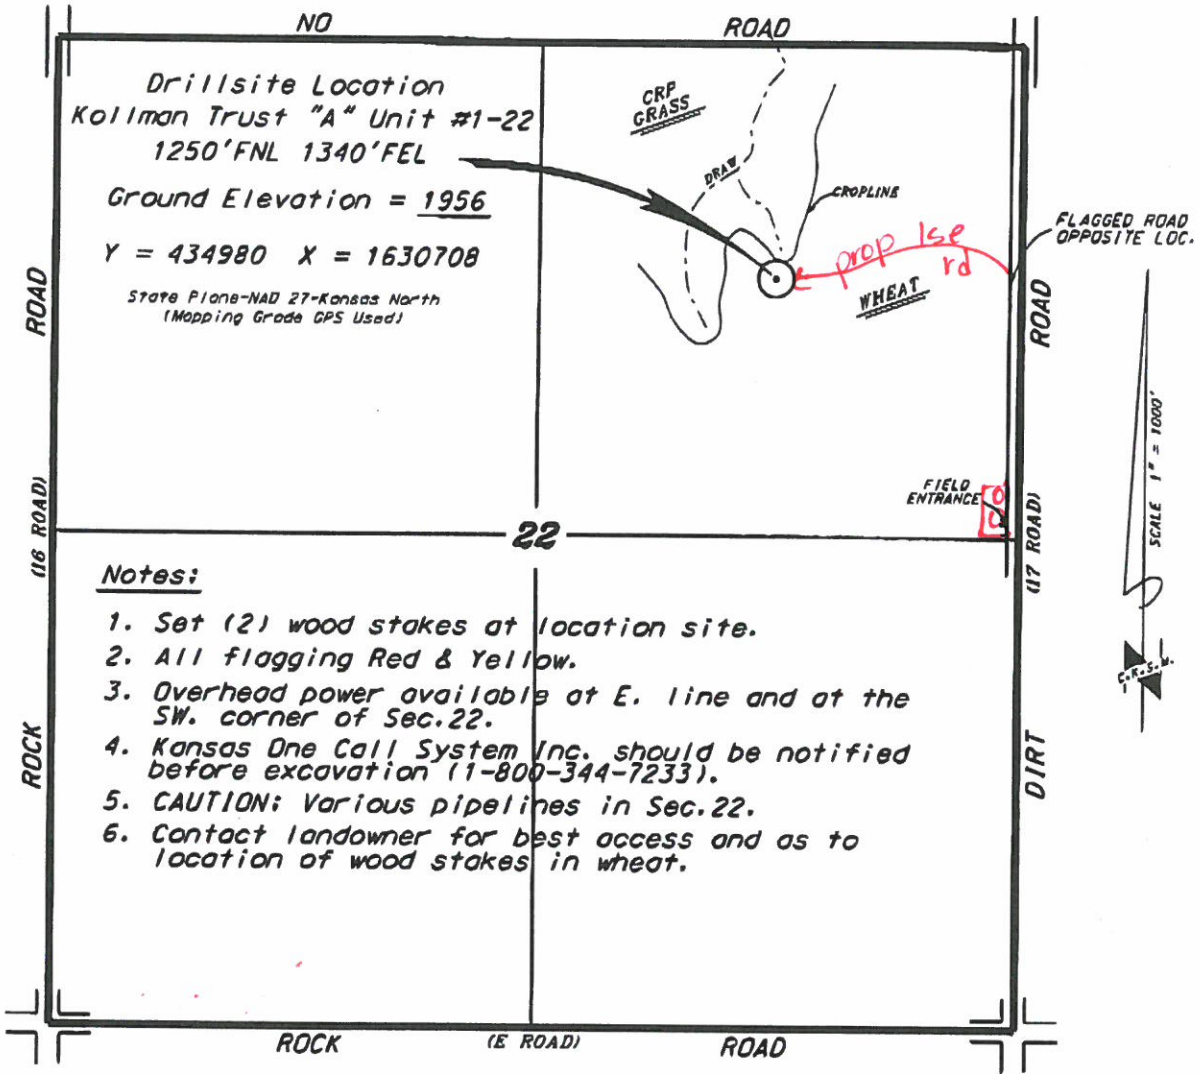 NO
ROAD
Drillsite Location
Kollman Trust "A" Unit #1-22
1250'FNL 1340'FEL
Ground Elevation = 1956
Y = 434980 X = 1630708
State Plane-NAD 27-Kansas North
(Mapping Grade GPS Used)
CRP
GRASS
DRAW
CROPLINE
FLAGGED ROAD
OPPOSITE LOC.
prop lse
rd
WHEAT
ROAD
ROAD
SCALE 1" = 1000'
FIELD
ENTRANCE
(16 ROAD)
(17 ROAD)
22
Notes:
1. Set (2) wood stakes at location site.
2. All flagging Red & Yellow.
3. Overhead power available at E. line and at the
SW. corner of Sec.22.
4. Kansas One Call System Inc. should be notified
before excavation (1-800-344-7233).
5. CAUTION: Various pipelines in Sec.22.
6. Contact landowner for best access and as to
location of wood stakes in wheat.
C.K.S.M.
ROCK
DIRT
ROCK
(E ROAD)
ROAD